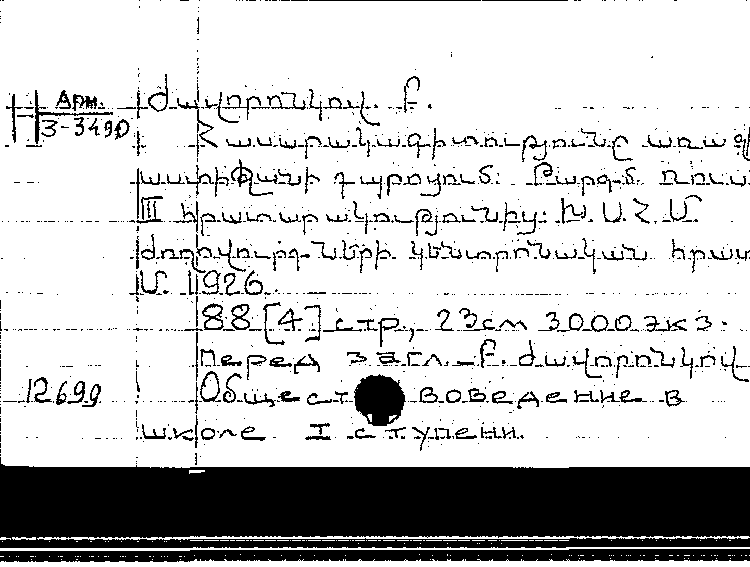 Арм.
З-3490
Ժավորոնկով. Բ.
Հասարակագիտությունը առաջ
աստիճանի դպրոցում: Թարգմ. Ռուս
III հրատարակությունից: Խ. Ս. Հ. Մ.
ժողովուրդ-ների կենտրոնական հրատ
Մ. 1926
88 [4] стр., 23см 3000 экз.
Перед загл. Բ. Ժավորոնկով
12699
Обществоведение в
школе I ступени.